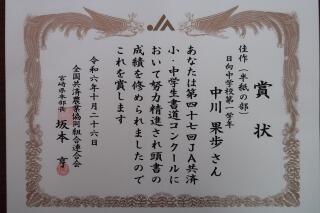 賞状
佳作(半紙の部)
日向中学校第一学年
中川果歩さん
あなたは第四十七回JA共済
小・中学生書道コンクールに
おいて努力精進され頭書の
成績を修められましたので
これを賞します
令和六年十月二十六日
全国共済農業協同組合連合会
宮崎県本部長 坂本亨